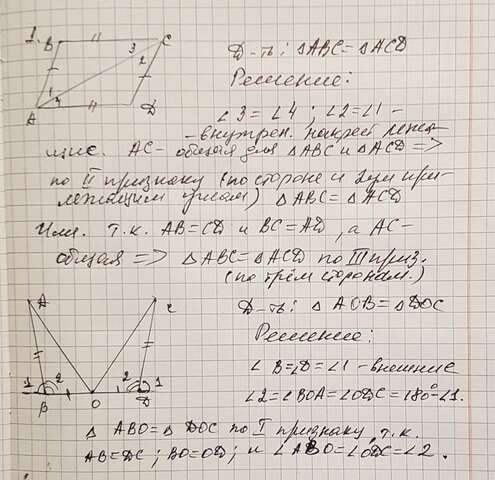 1.
B C
3
2
1
4
A D
Д-ть: ΔABC = ΔACD
Решение:
∠3=∠4; ∠2=∠1 –
- внутрен. накрест лежа-
щие. AC - общая для ΔABC и ΔACD =>
по II признаку (по стороне и двум при-
лежащим углам) ΔABC = ΔACD
Или. т.к. AB=CD и BC=AD, а AC-
общая => ΔABC=ΔACD по III приз.
(по трём сторонам.)
A C
1 2 2 1
B O D
Д-ть: ΔAOB=ΔDOC
Решение:
∠B=∠D=∠1 - внешние
∠2=∠BOA=∠ODC=180°-∠1.
ΔABO=ΔDOC по I признаку, т.к.
AB=DC; BO=OD; и ∠ABO=∠ODC=∠2.